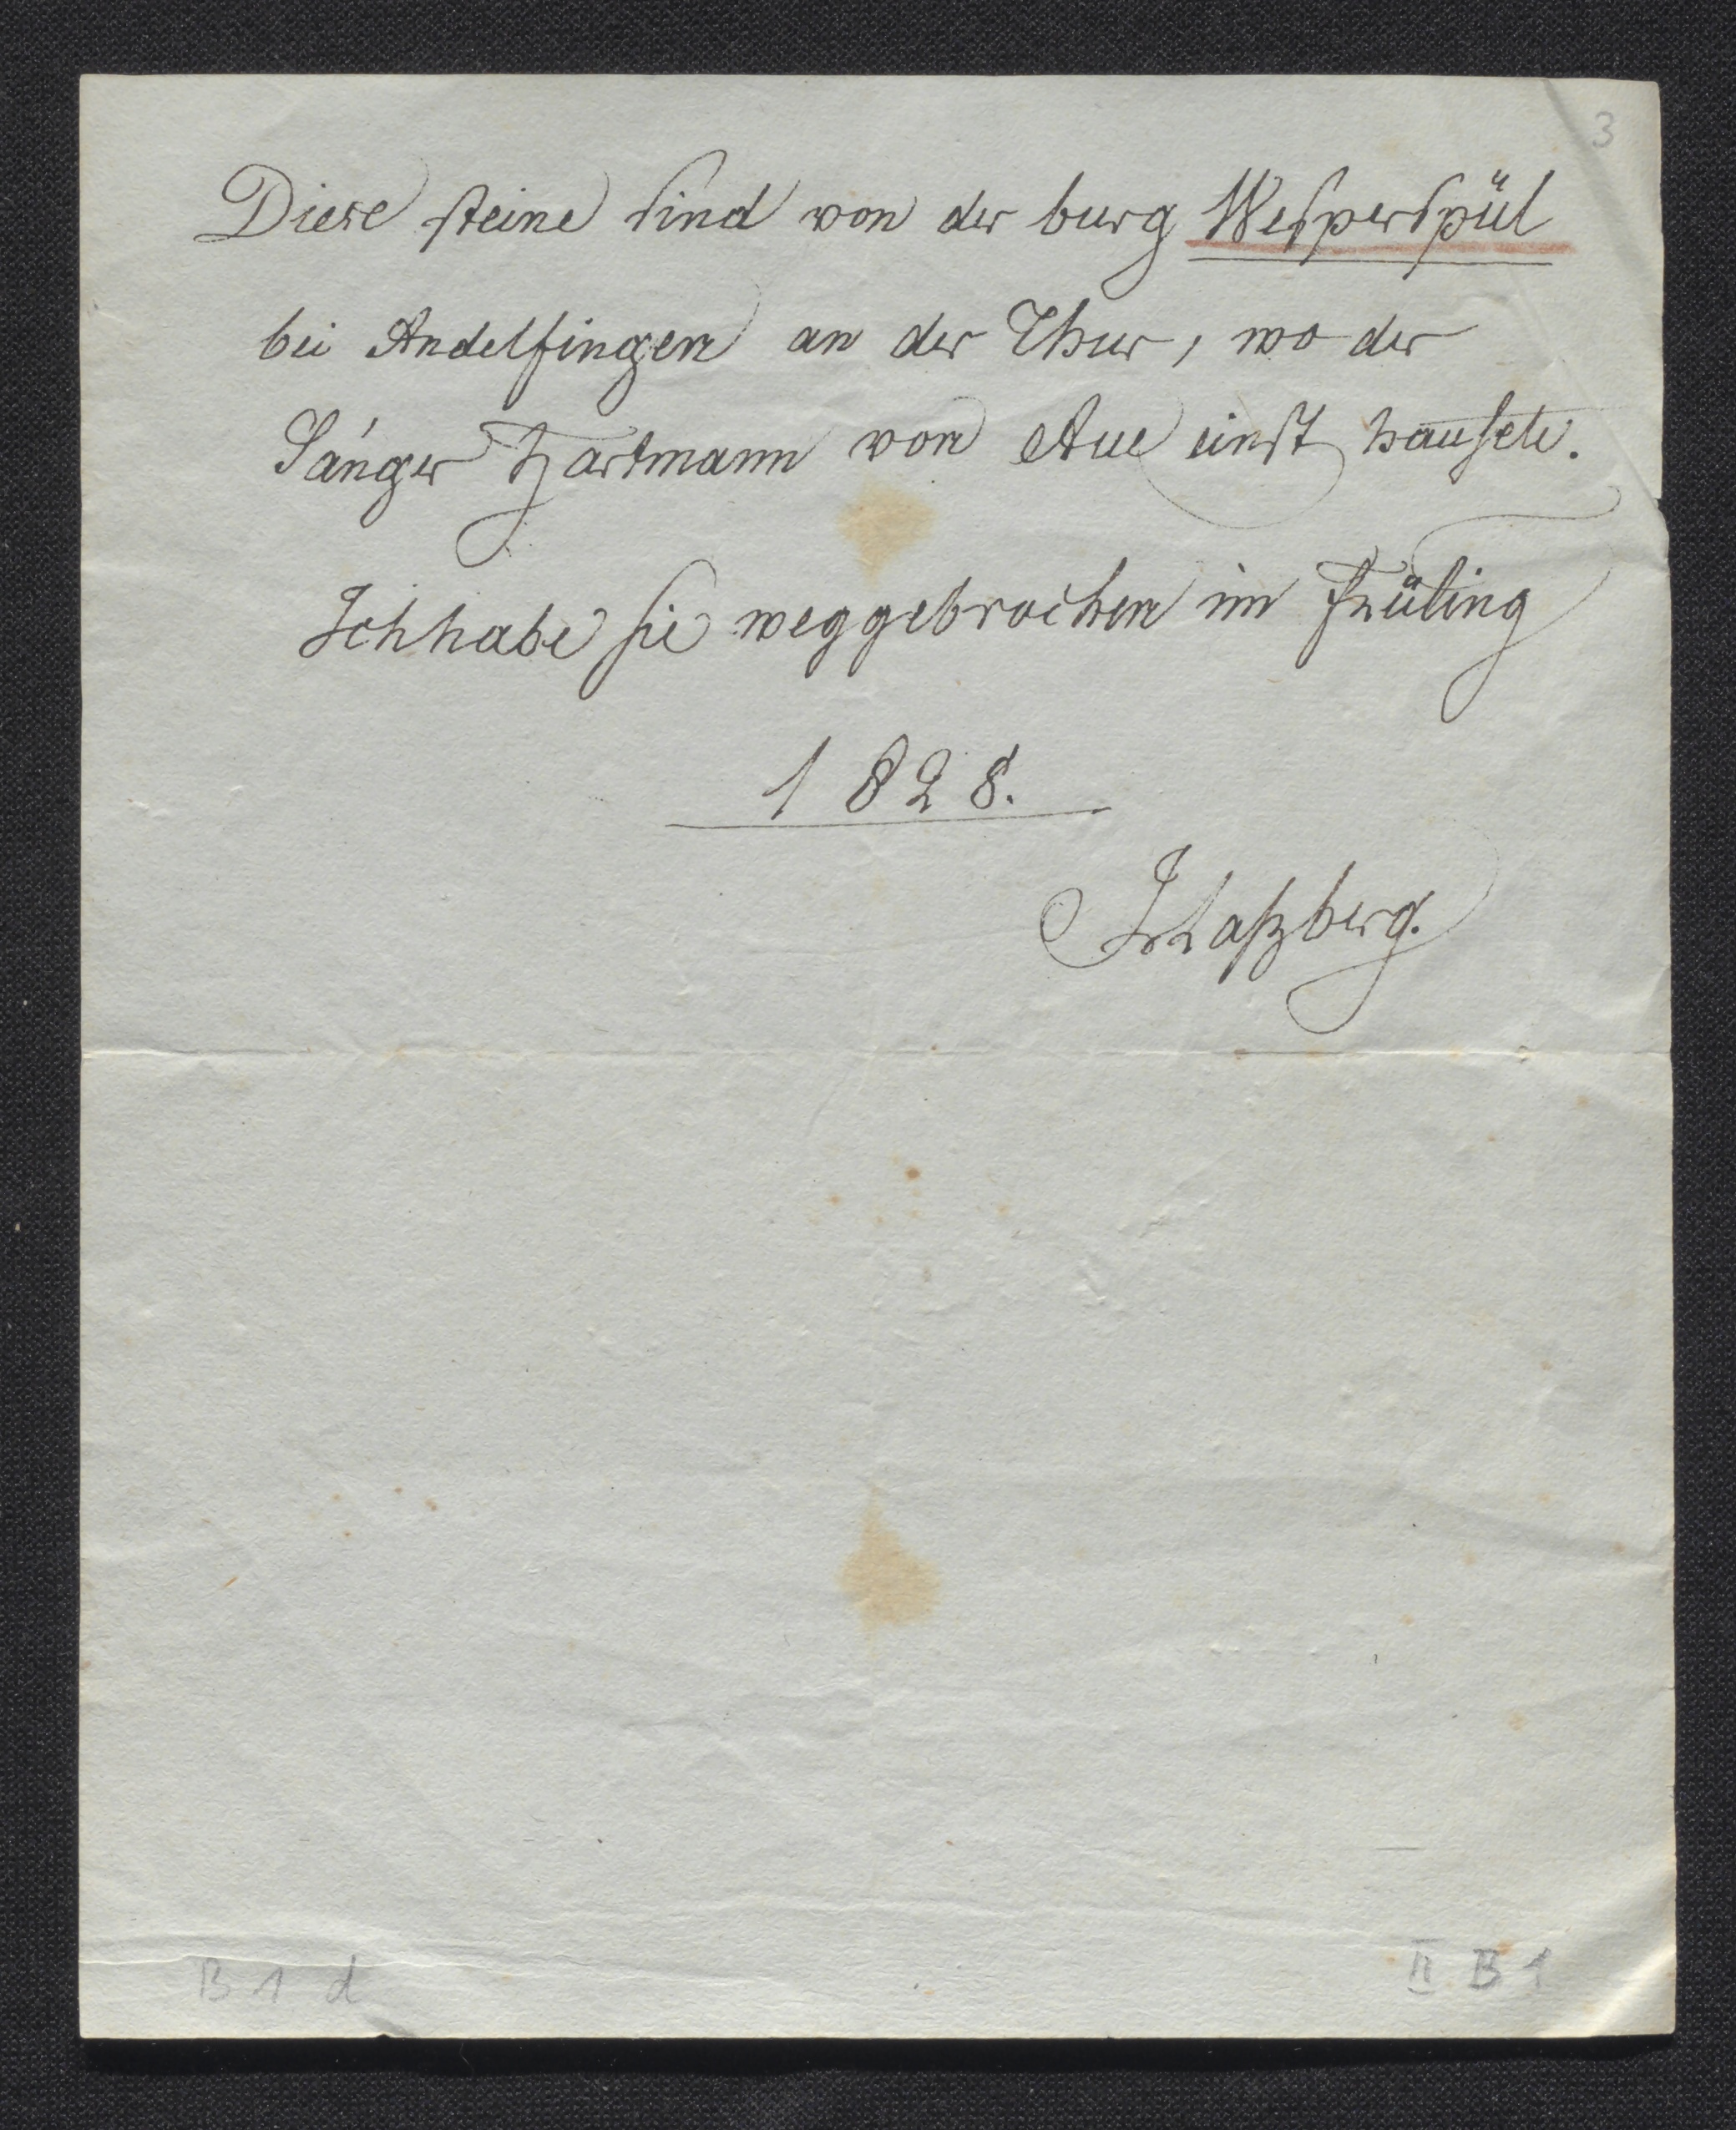 3
Diese steine sind von der burg Wesperspül
bei Andelfingen an der Thur, wo der
Sänger Hartmann von Aue einst hausete.
Ich habe sie weggebrochen im Früling
1828.
JvLaßberg.
B 1 d
II B 1